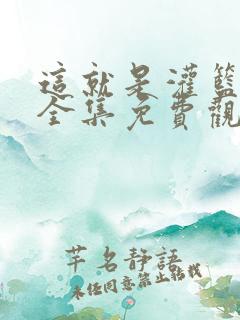 這就是灌籃
全集免費觀
芊名静語
未任同意禁止轉載